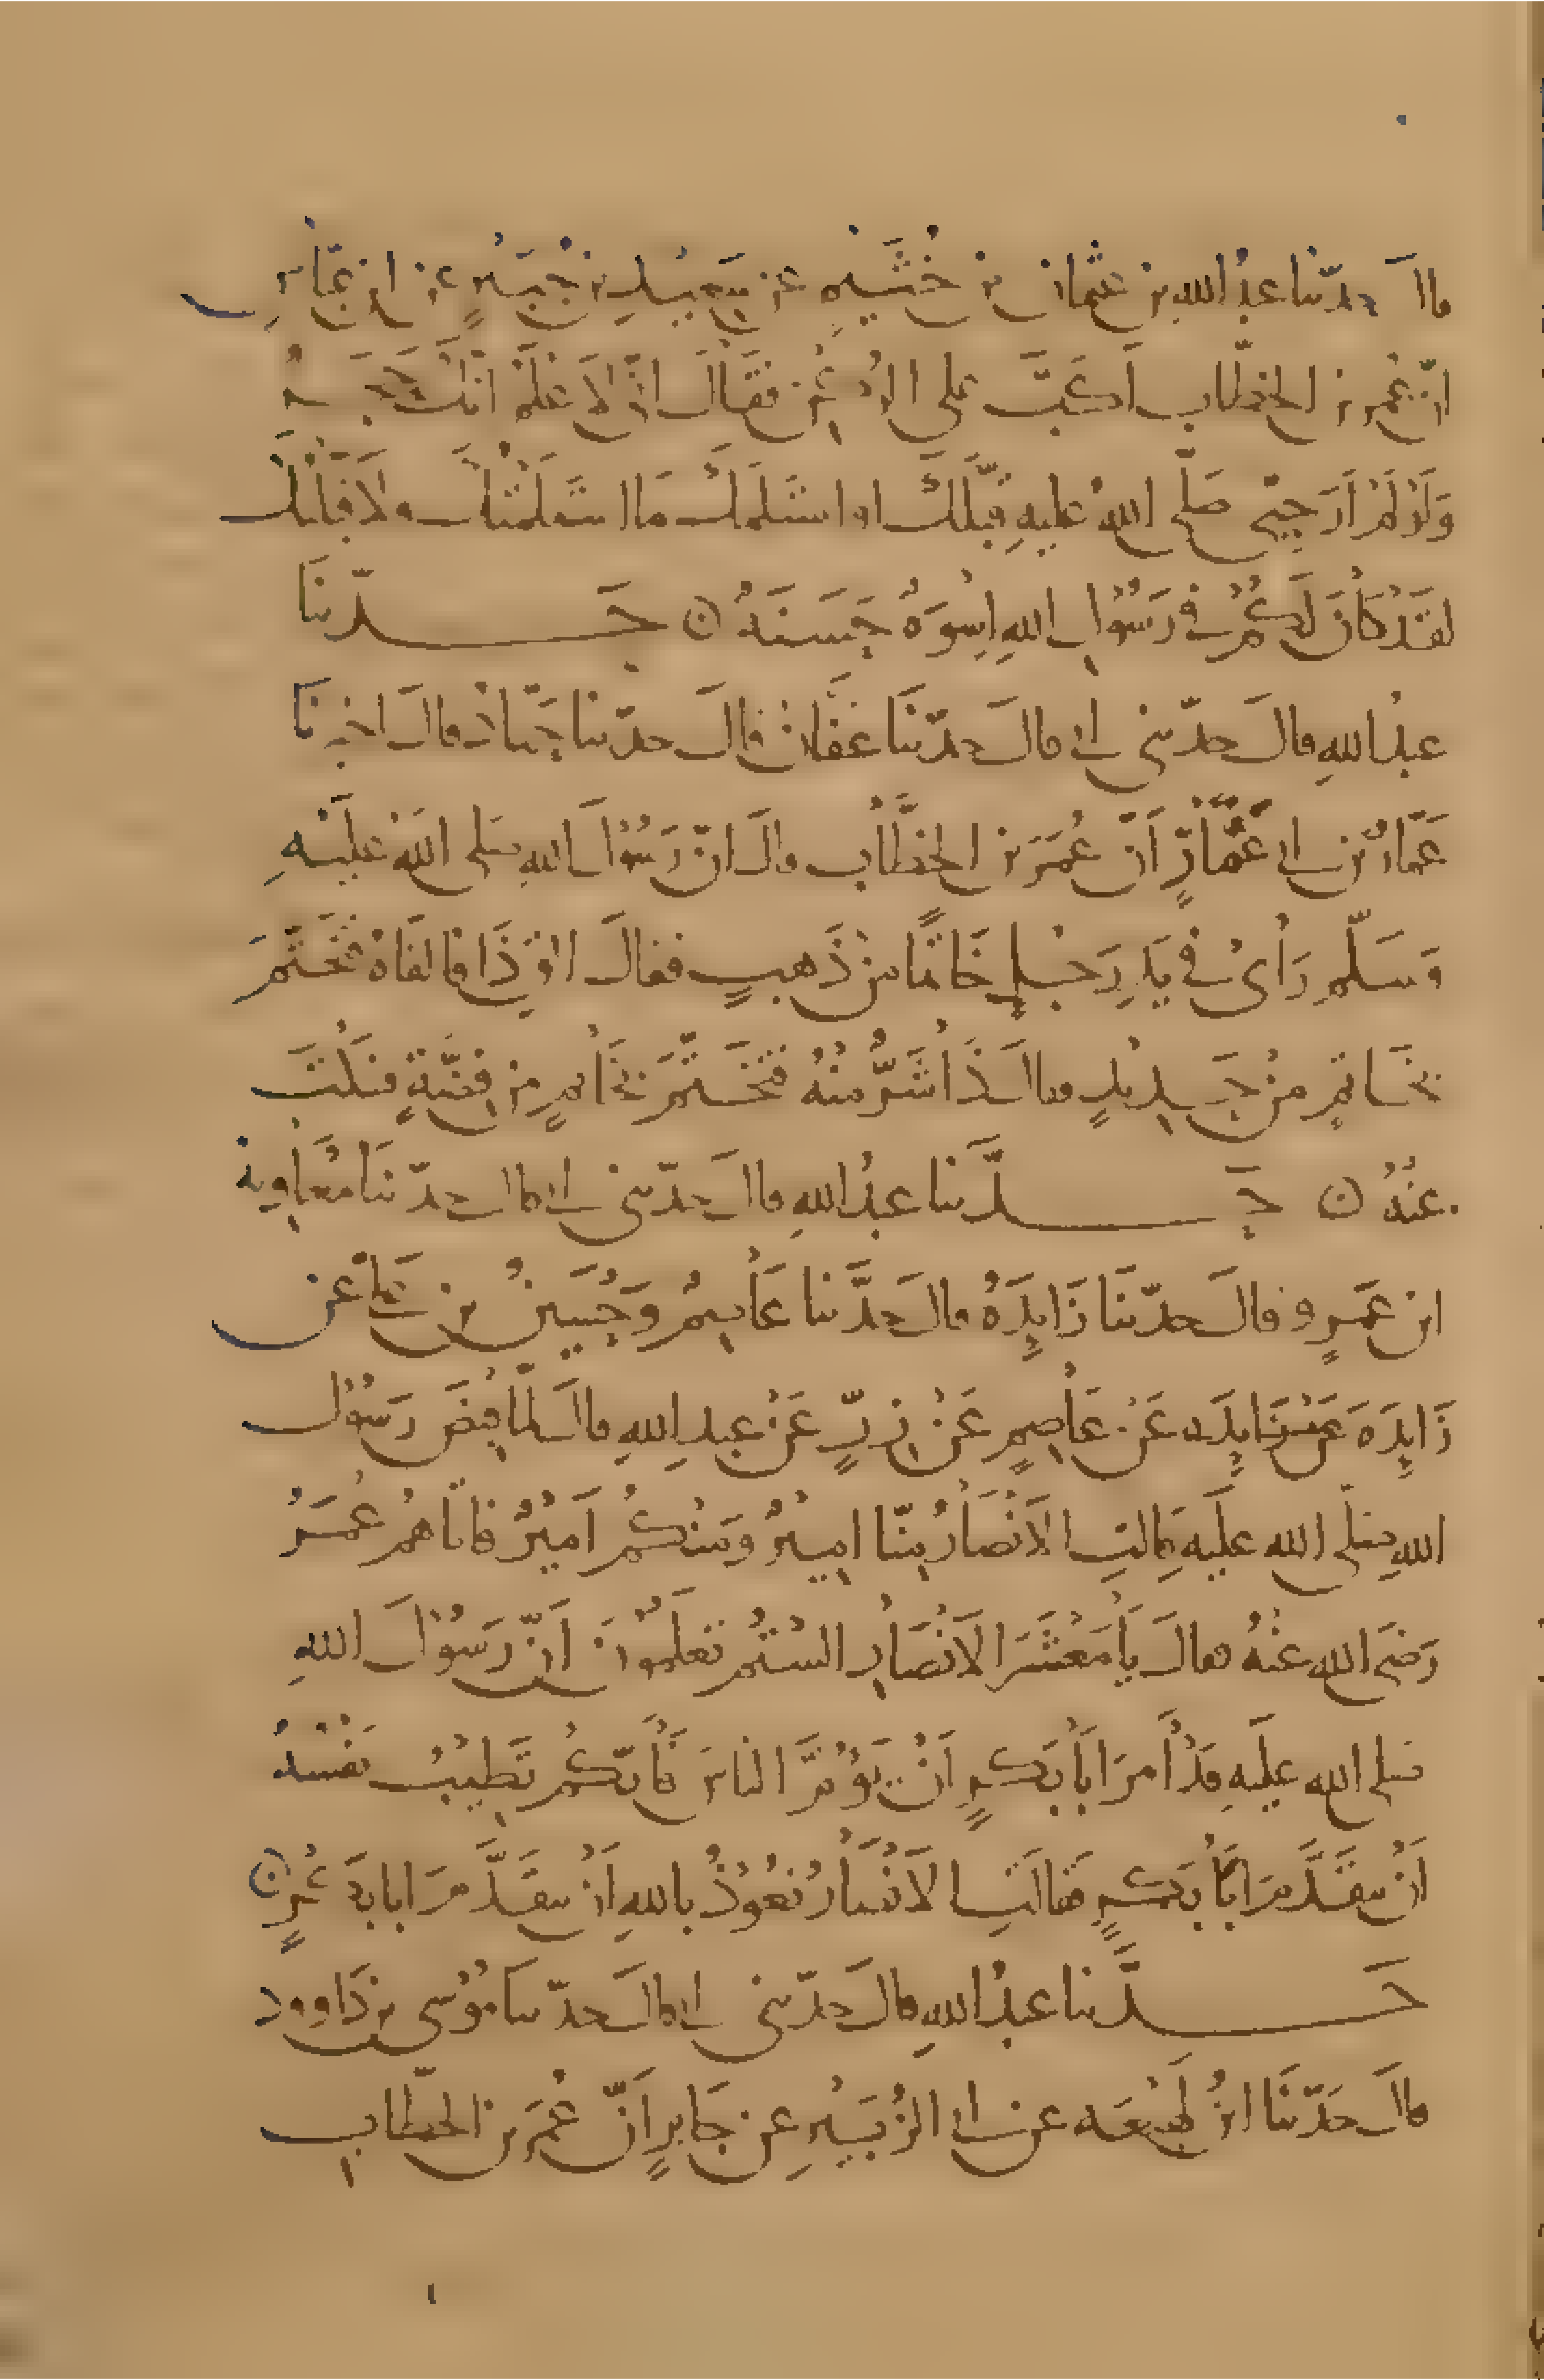 قال حدّثنا عبدُ الله بن عثمان بن خُثَيمٍ عن سَعِيدِ بن جُبَيرٍ عن ابن عبّاسٍ
انّ عُمر بن الخطّاب أكَبَّ على الرُكن فقَالَ انّي لاَعْلَمُ انّكَ حَجَرٌ
وَلَوْ لَمْ اَرَ حِبّي صَلّى اللهُ عليهِ قَبَّلَكَ او استَلَمَكَ مَا استَلَمْتُكَ ولاَ قَبَّلْتُكَ
لقَدْ كَانَ لَكُمْ في رَسُوْلِ اللهِ اِسْوَةٌ حَسَنَةٌ ن حَدّثنَا
عبدُ اللهِ قالَ حدّثني ابي قالَ حدّثنَا عَفّانُ قالَ حدّثنا حَمّادٌ قالَ اخبرنَا
عَمّارُ بن ابي عَمّارٍ أنّ عُمَرَ بن الخطّابِ قالَ انّ رَسُوْلَ اللهِ صَلى اللهُ عليْهِ
وَسَلّم رَأى في يَدِ رَجُلٍ خَاتمًا من ذَهبٍ فقالَ القِ ذَا فالقَاهُ فتَخَتَّمَ
بخَاتمٍ مِنْ حَدِيْدٍ فقالَ ذَا شَرٌّ منْهُ فتَخَتَّمَ بخَاتمٍ مِن فِضّةٍ فسَكَتَ
عنْهُ ن حَدَّثنا عبدُ اللهِ قالَ حَدّثني ابي قالَ حدّثنَا مُعَاوية
ابن عَمرٍو قالَ حدّثنَا زَايِدَةُ قالَ حدَّثنا عَاصِمٌ وَحُسَينُ بن عَلِيٍّ عن
زَايِدَةَ عَنْ زَايِدَه عَنْ عَاصِمٍ عَنْ زِرٍّ عَنْ عبدِ اللهِ قالَ لمّا قُبِضَ رَسُوْلُ
اللهِ صَلّى الله عليهِ قالتِ الاَنْصَارُ مِنّا امِيْرٌ وَمِنْكُم أمِيْرٌ فاتَاهُمْ عُمَرُ
رَضِيَ الله عَنْهُ فقالَ يَا مَعْشَرَ الاَنْصَارِ السْتُمْ تعلَمُوْنَ أنّ رَسُوْلَ اللهِ
صَلى الله عليهِ قدْ أمرَ ابَا بَكرٍ أنْ يَؤُمَّ الناسَ فَأيّكُمْ تَطِيْبُ نفْسُهُ
أنْ يتقَدَّمَ ابَا بَكرٍ فقالتِ الاَنْصَارُ نعُوْذُ باللهِ أنْ نتقَدَّمَ ابا بَكْرٍ ن
حَدَّثنا عبدُ اللهِ قالَ حدّثني ابي قالَ حدّثنَا مُوْسى بن دَاوود
قالَ حَدّثنَا ابنُ لَهِيْعَه عن ابي الزُبَيْرِ عن جَابرٍ أنّ عُمَرَ بن الخطّابِ